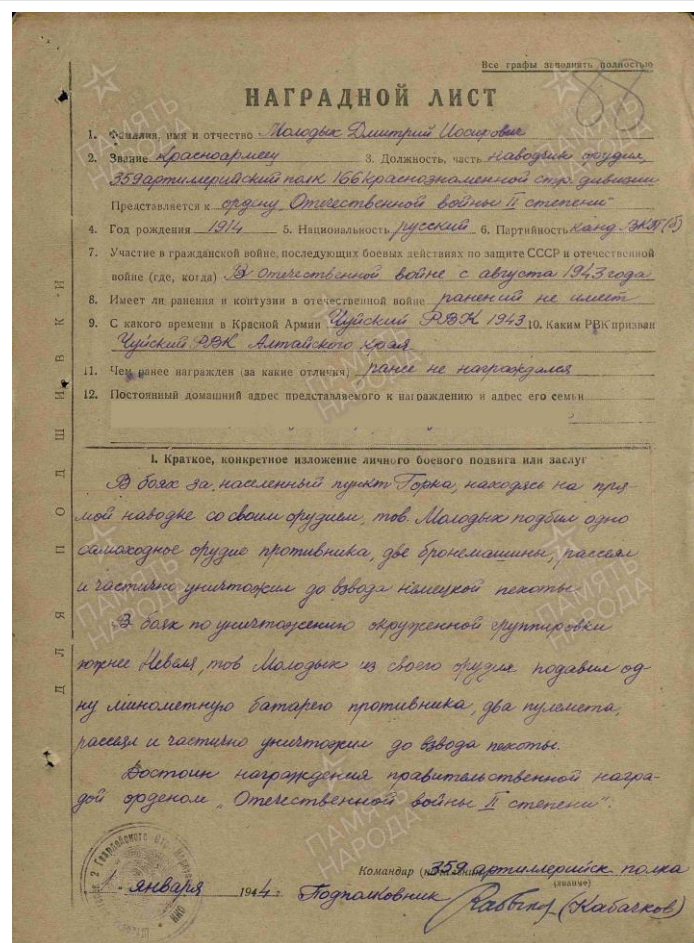 Все графы заполнять полностью
88
НАГРАДНОЙ ЛИСТ
1. Фамилия, имя и отчество Молодых Дмитрий Иосифович
2. Звание Красноармеец 3. Должность, часть наводчик орудия,
359 артиллерийский полк 166 Краснознаменной стр. дивизии
Представляется к ордену Отечественной войны II степени
4. Год рождения 1914 5. Национальность русский 6. Партийность канд. ВКП(б)
7. Участие в гражданской войне, последующих боевых действиях по защите СССР и отечественной
войне (где, когда) В Отечественной войне с августа 1943 года
8. Имеет ли ранения и контузии в отечественной войне ранений не имеет
9. С какого времени в Красной Армии Чуйский РВК 1943 10. Каким РВК призван
Чуйский РВК Алтайского края
11. Чем ранее награжден (за какие отличия) ранее не награждался
12. Постоянный домашний адрес представляемого к награждению и адрес его семьи
I. Краткое, конкретное изложение личного боевого подвига или заслуг
В боях за населенный пункт Горка, находясь на пря-
мой наводке со своим орудием, тов. Молодых подбил одно
самоходное орудие противника, две бронемашины, рассеял
и частично уничтожил до взвода немецкой пехоты.
В боях по уничтожению окруженной группировки
южнее Невеля, тов Молодых из своего орудия подавил од-
ну минометную батарею противника, два пулемета,
рассеял и частично уничтожил до взвода пехоты.
Достоин награждения правительственной награ-
дой орденом "Отечественной войны II степени".
Командир 359 артиллерийск. полка
(звание)
января 1944 г. Подполковник (Кабачков)
ДЛЯ ПОДШИВКИ
ПАМЯТЬ НАРОДА
ПАМЯТЬ НАРОДА
ПАМЯТЬ НАРОДА
ПАМЯТЬ НАРОДА
ПАМЯТЬ НАРОДА
ПАМЯТЬ НАРОДА